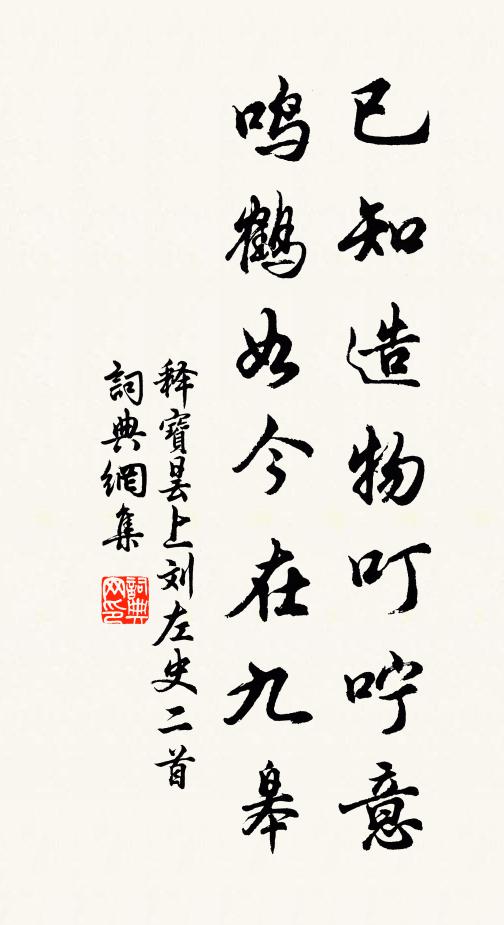 已知造物叮咛意
鸣鹤如今在九皋
释寶昙上刘左史二首
詞典網集
詞典網印